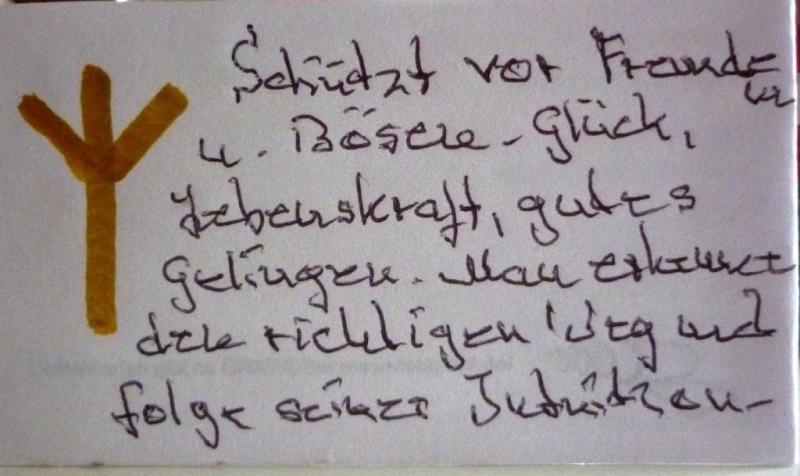 Schützt vor
u. Bösem - Glück,
Lebenskraft, gutes
Gelingen. Man erkennt
den richtigen Weg und
folge seiner Intuition -